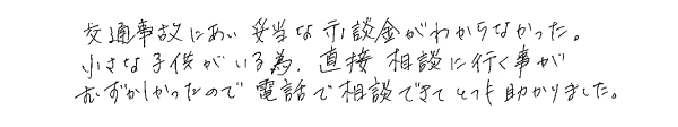 交通事故にあい妥当な示談金がわからなかった。
小さな子供がいる為、直接相談に行く事が
むずかしかったので電話で相談できてとても助かりました。